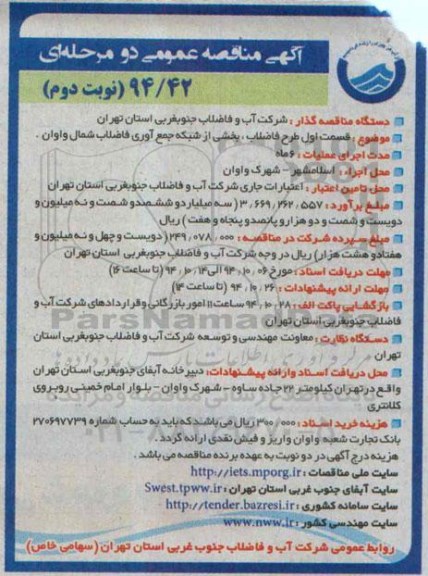 آگهی مناقصه عمومی دو مرحله‌ای
۹۴/۴۲ (نوبت دوم)
دستگاه مناقصه گذار : شرکت آب و فاضلاب جنوبغربی استان تهران
موضوع : قسمت اول طرح فاضلاب ، بخشی از شبکه جمع آوری فاضلاب شمال واوان .
مدت اجرای عملیات : ۶ ماه
محل اجراء : اسلامشهر - شهرک واوان
محل تامین اعتبار : اعتبارات جاری شرکت آب و فاضلاب جنوبغربی استان تهران
مبلغ برآورد : ۳٫۶۶۹٫۲۶۲٫۵۵۷ ( سه میلیارد و ششصد و شصت و نه میلیون و
دویست و شصت و دو هزار و پانصد و پنجاه و هفت ) ریال
مبلغ سپرده شرکت در مناقصه : ۲۴۹٫۰۷۸٫۰۰۰ ( دویست و چهل و نه میلیون و
هفتاد و هشت هزار) ریال در وجه شرکت آب و فاضلاب جنوبغربی استان تهران
مهلت دریافت اسناد : مورخ ۹۴٫۱۰٫۰۶ الی ۹۴٫۱۰٫۱۴ ( تا ساعت ۱۶)
مهلت ارائه پیشنهادات : ۹۴٫۱۰٫۲۶ ( تا ساعت ۱۴)
بازگشایی پاکت الف : ۹۴٫۱۰٫۲۸ ساعت ۱۱ امور بازرگانی و قراردادهای شرکت آب و
فاضلاب جنوبغربی استان تهران
دستگاه نظارت : معاونت مهندسی و توسعه شرکت آب و فاضلاب جنوبغربی استان
تهران
محل دریافت اسناد و ارائه پیشنهادات: دبیرخانه آبفای جنوبغربی استان تهران
واقع در تهران کیلومتر ۲۲ جاده ساوه - شهرک واوان - بلوار امام خمینی روبروی
کلانتری
هزینه خرید اسناد : ۳۰۰/۰۰۰ ریال می باشد که باید به حساب شماره ۲۷۰۶۹۷۷۳۹
بانک تجارت شعبه واوان واریز و فیش نقدی ارائه گردد .
هزینه درج آگهی در دو نوبت به عهده برنده مناقصه می باشد .
سایت ملی مناقصات : http://iets.mporg.ir
سایت آبفای جنوب غربی استان تهران : Swest.tpww.ir
سایت سامانه کشوری : http://tender.bazresi.ir
سایت مهندسی کشور : www.nww.ir
روابط عمومی شرکت آب و فاضلاب جنوب غربی استان تهران (سهامی خاص)
ParsNamadData